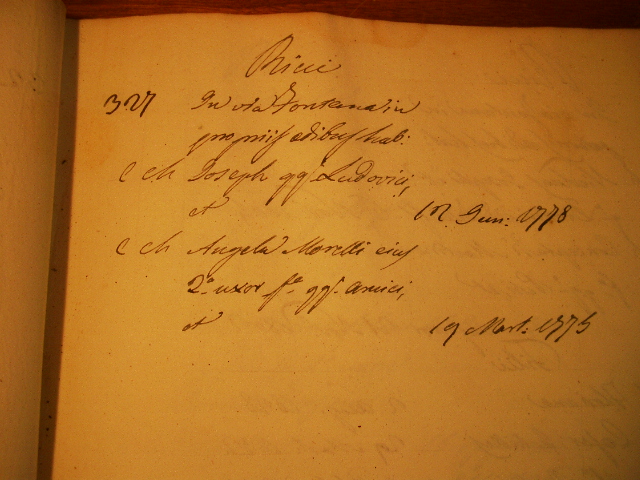 Ricci
327 In via Fontana in
propriis edibus hab:
C Ch Joseph qq. Ludovici,
et 12 Jun: 1778
C Ch Angela Morelli eius
2.a uxor f.a qq. Amici,
et 19 Mart: 1775